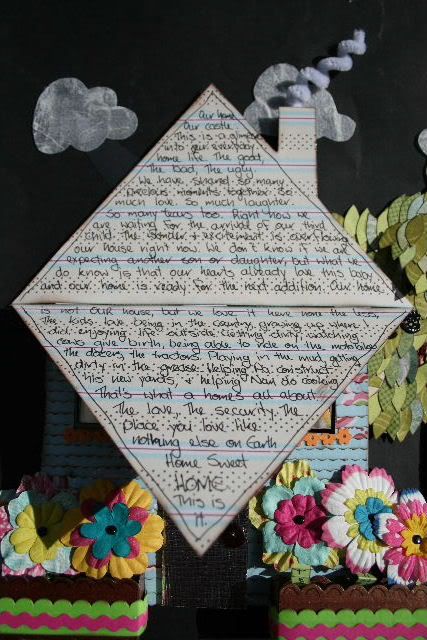 Our home
Our castle
This is a glimpse
into our everyday
home life. The good,
The Bad, The Ugly.
We have shared so many
precious moments together. So
much love. So much laughter.
So many tears too. Right now we
are waiting for the arrival of our third
child. The wonder & excitement is overflowing
our house right now. We don't know if we are
expecting another son or daughter, but what we
do know is that our hearts already love this baby
and our home is ready for the next addition. Our home
is not OUR house, but we love it here none the less,
The kids love being in the country, growing up where
enjoying life outside, watching
cows give birth, being able to ride on the motorbikes
the dozers, the tractors. Playing in the mud, getting
dirty in the grease helping Pa construct
his new yards, & helping Nan do cooking
That's what a homes all about.
The love, The security. The
place you love like
nothing else on Earth
Home Sweet
HOME
This is
it.